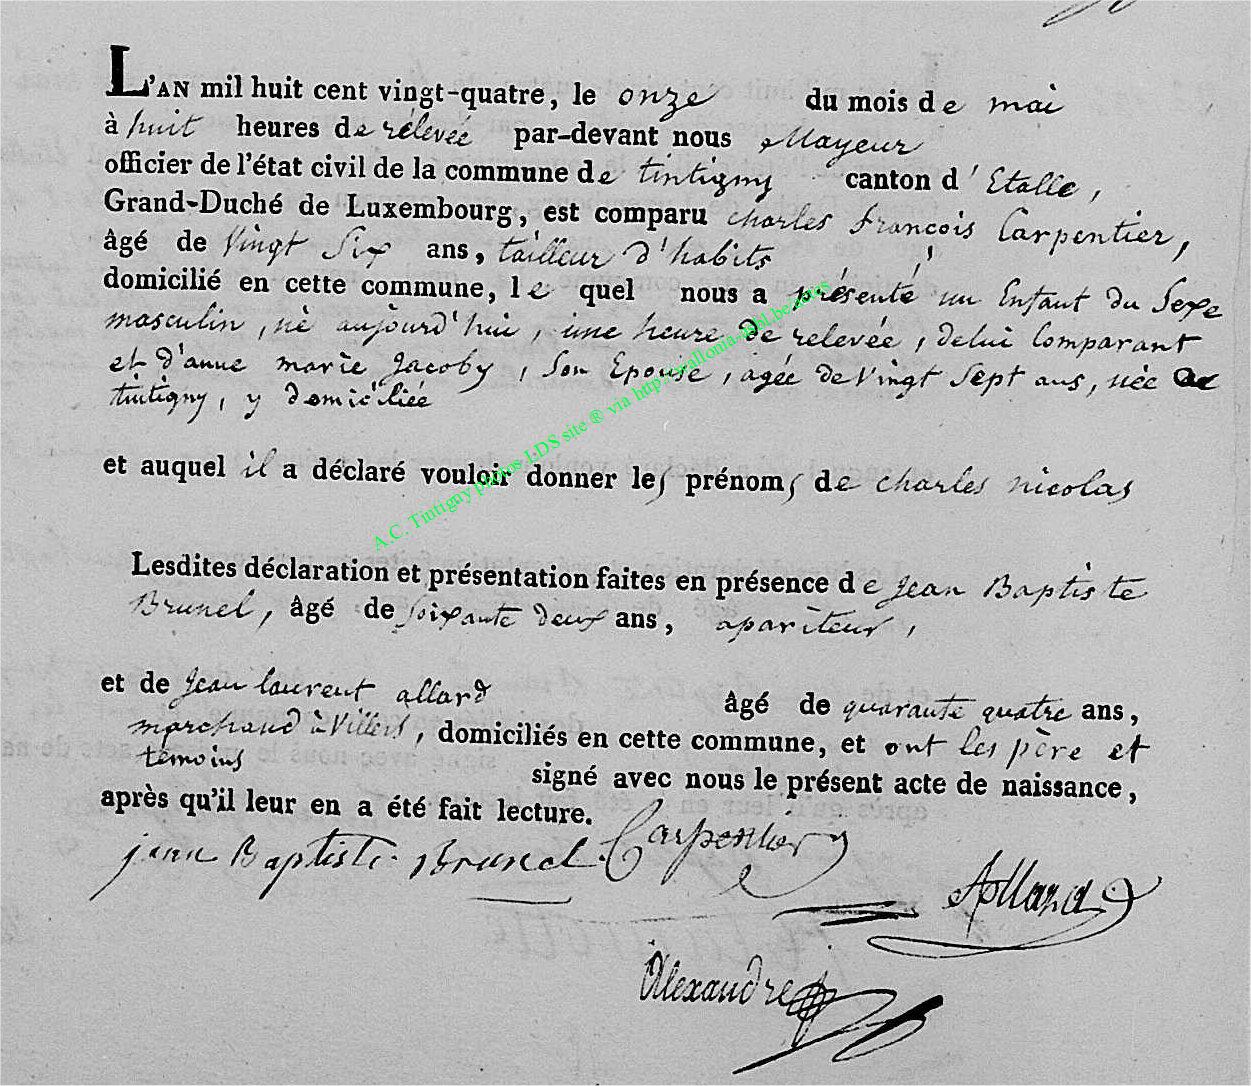 L'AN mil huit cent vingt-quatre, le onze du mois de mai
à huit heures de rélevée par-devant nous Mayeur
officier de l'état civil de la commune de tintigny canton d'Etalle,
Grand-Duché de Luxembourg, est comparu charles françois Carpentier,
âgé de Vingt Six ans, tailleur d'habits,
domicilié en cette commune, le quel nous a présenté un Enfant du Sexe
masculin, né aujourd'hui, une heure de relevée, delui Comparant
et d'anne marie Jacoby, Son Epouse, agée de Vingt Sept ans, née de
tintigny, y domiciliée
et auquel il a déclaré vouloir donner les prénoms de charles nicolas
Lesdites déclaration et présentation faites en présence de Jean Baptiste
Brunel, âgé de Soixante deux ans, apariteur,
et de Jean laurent allard âgé de quarante quatre ans,
marchand à Villers, domiciliés en cette commune, et ont les père et
temoins signé avec nous le présent acte de naissance,
après qu'il leur en a été fait lecture.
jean Baptiste Brunel Carpentier
Allard
Alexandre
A.C. Tintigny photos LDS site ® via http://wallonia-asbl.be/actes